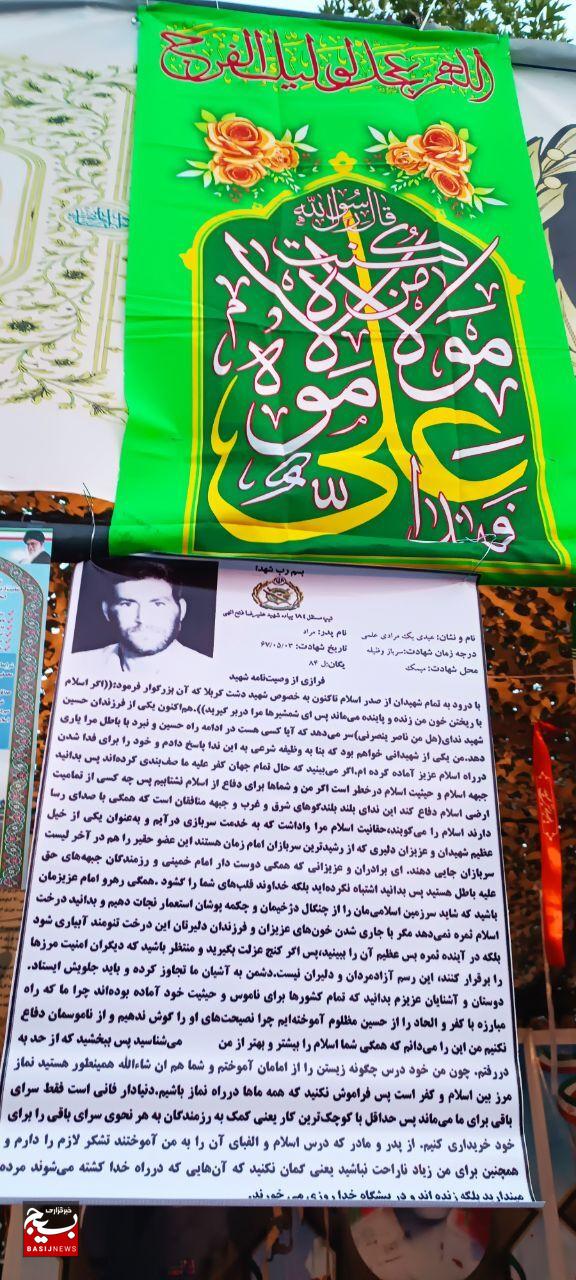 اللهم عجل لولیک الفرج
قال رسول الله
کنت
من
مولاه
فهذا
علی
مولاه
بسم رب شهدا
تیپ مستقل ۱۸٤ پیاده شهید علیرضا فتح الهی
نام و نشان: عبدی بک مرادی علمی
نام پدر: مراد
درجه زمان شهادت: سرباز وظیفه
تاریخ شهادت: ۶۷/۰۵/۰۳
محل شهادت: میمک
یگان: ل ۸۴
فرازی از وصیت‌نامه شهید
با درود به تمام شهیدان از صدر اسلام تاکنون به خصوص شهید دشت کربلا که آن بزرگوار فرمود:((اگر اسلام
با ریختن خون من زنده و پاینده می‌ماند پس ای شمشیرها مرا دربر گیرید)).هم‌اکنون یکی از فرزندان حسین
شهید ندای(هل من ناصر ینصرنی)سر می‌دهد که آیا کسی هست در ادامه راه حسین و نبرد با باطل مرا یاری
دهد.من یکی از شهیدانی خواهم بود که بنا به وظیفه شرعی به این ندا پاسخ دادم و خود را برای فدا شدن
درراه اسلام عزیز آماده کرده ام.اگر می‌بینید که حال تمام جهان کفر علیه ما صف‌بندی کرده‌اند پس بدانید
جبهه اسلام و حیثیت اسلام درخطر است اگر من و شماها برای دفاع از اسلام نشتابیم پس چه کسی از تمامیت
ارضی اسلام دفاع کند این ندای بلند بلندگوهای شرق و غرب و جبهه منافقان است که همگی با صدای رسا
دارند اسلام را می‌کوبند،حقانیت اسلام مرا واداشت که به خدمت سربازی درآیم و به‌عنوان یکی از خیل
عظیم شهیدان و عزیزان دلیری که از رشیدترین سربازان امام زمان هستند این عضو حقیر را هم در آخر لیست
سربازان جایی دهند. ای برادران و عزیزانی که همگی دوست دار امام خمینی و رزمندگان جبهه‌های حق
علیه باطل هستید پس بدانید اشتباه نکرده‌اید بلکه خداوند قلب‌های شما را گشود .همگی رهرو امام عزیزمان
باشید که شاید سرزمین اسلامی‌مان را از چنگال دژخیمان و چکمه پوشان استعمار نجات دهیم و بدانید درخت
اسلام ثمره نمی‌دهد مگر با جاری شدن خون‌های عزیزان و فرزندان دلیرتان این درخت تنومند آبیاری شود
بلکه در آینده ثمره بس عظیم آن را ببینید،پس اگر کنج عزلت بگیرید و منتظر باشید که دیگران امنیت مرزها
را برقرار کنند، این رسم آزادمردان و دلیران نیست.دشمن به آشیان ما تجاوز کرده و باید جلویش ایستاد.
دوستان و آشنایان عزیزم بدانید که تمام کشورها برای ناموس و حیثیت خود آماده بوده‌اند چرا ما که راه
مبارزه با کفر و الحاد را از حسین مظلوم آموخته‌ایم چرا نصیحت‌های او را گوش ندهیم و از ناموسمان دفاع
نکنیم من این را می‌دانم که همگی شما اسلام را بیشتر و بهتر از من می‌شناسید پس ببخشید که از حد به
دررفتم. چون من خود درس چگونه زیستن را از امامان آموختم و شما هم ان شاءالله همینطور هستید نماز
مرز بین اسلام و کفر است پس فراموش نکنید که همه ماها درراه نماز باشیم.دنیادار فانی است فقط سرای
باقی برای ما می‌ماند پس حداقل با کوچک‌ترین کار یعنی کمک به رزمندگان به هر نحوی سرای باقی را برای
خود خریداری کنیم. از پدر و مادر که درس اسلام و الفبای آن را به من آموختند تشکر لازم را دارم و
همچنین برای من زیاد ناراحت نباشید یعنی گمان نکنید که آن‌هایی که درراه خدا کشته می‌شوند مرده
میندارید بلکه زنده اند و در پیشگاه خدا روزی می خورند.
خبرگزاری
بسیج
BASIJNEWS